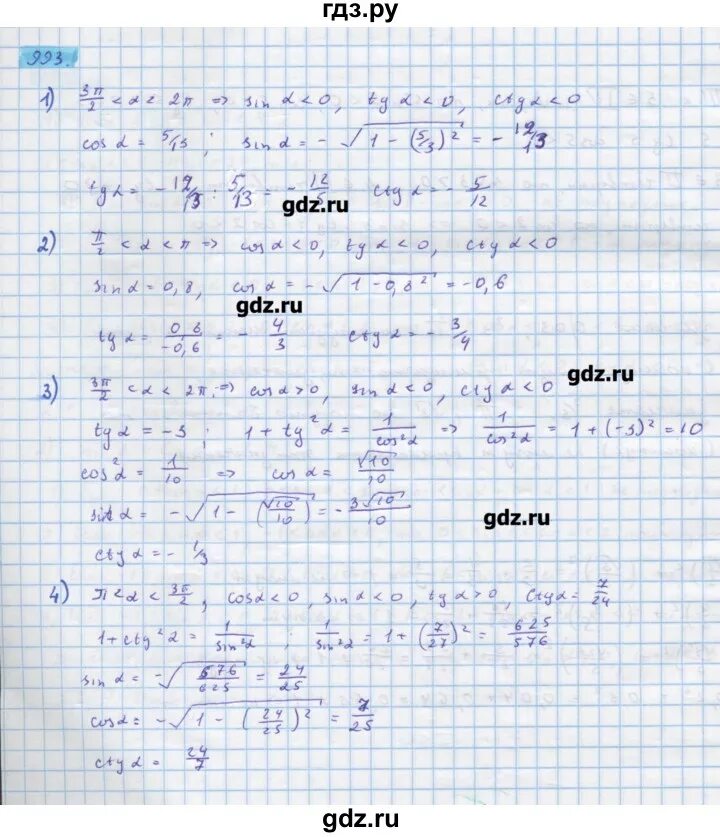 гдз.ру
993.
1) 3π/2 < α < 2π ⇒ sin α < 0, tg α < 0, ctg α < 0
cos α = 5/13; sin α = -√(1 - (5/3)²) = - 12/13
tg α = - 12/13 : 5/13 = - 12/5 ctg α = - 5/12
gdz.ru
2) π/2 < α < π ⇒ cos α < 0, tg α < 0, ctg α < 0
sin α = 0,8, cos α = -√(1 - 0,8²) = -0,6
gdz.ru
tg α = 0,8/-0,6 = - 4/3 ctg α = - 3/4
gdz.ru
3) 3π/2 < α < 2π; ⇒ cos α > 0, sin α < 0, ctg α < 0
tg α = -3; 1 + tg²α = 1/cos²α ⇒ 1/cos²α = 1 + (-3)² = 10
cos²α = 1/10 ⇒ cos α = √10/10
sin α = -√(1 - (√10/10)) = - 3√10/10
gdz.ru
ctg α = - 1/3
4) π < α < 3π/2, cos α < 0, sin α < 0, tg α > 0, ctg α = 7/24
1 + ctg²α = 1/sin²α; 1/sin²α = 1 + (7/27)² = 625/576
sin α = -√(576/625) = 24/25
cos α = -√(1 - (24/25)²) = 7/25
ctg α = 24/7
gdz.ru